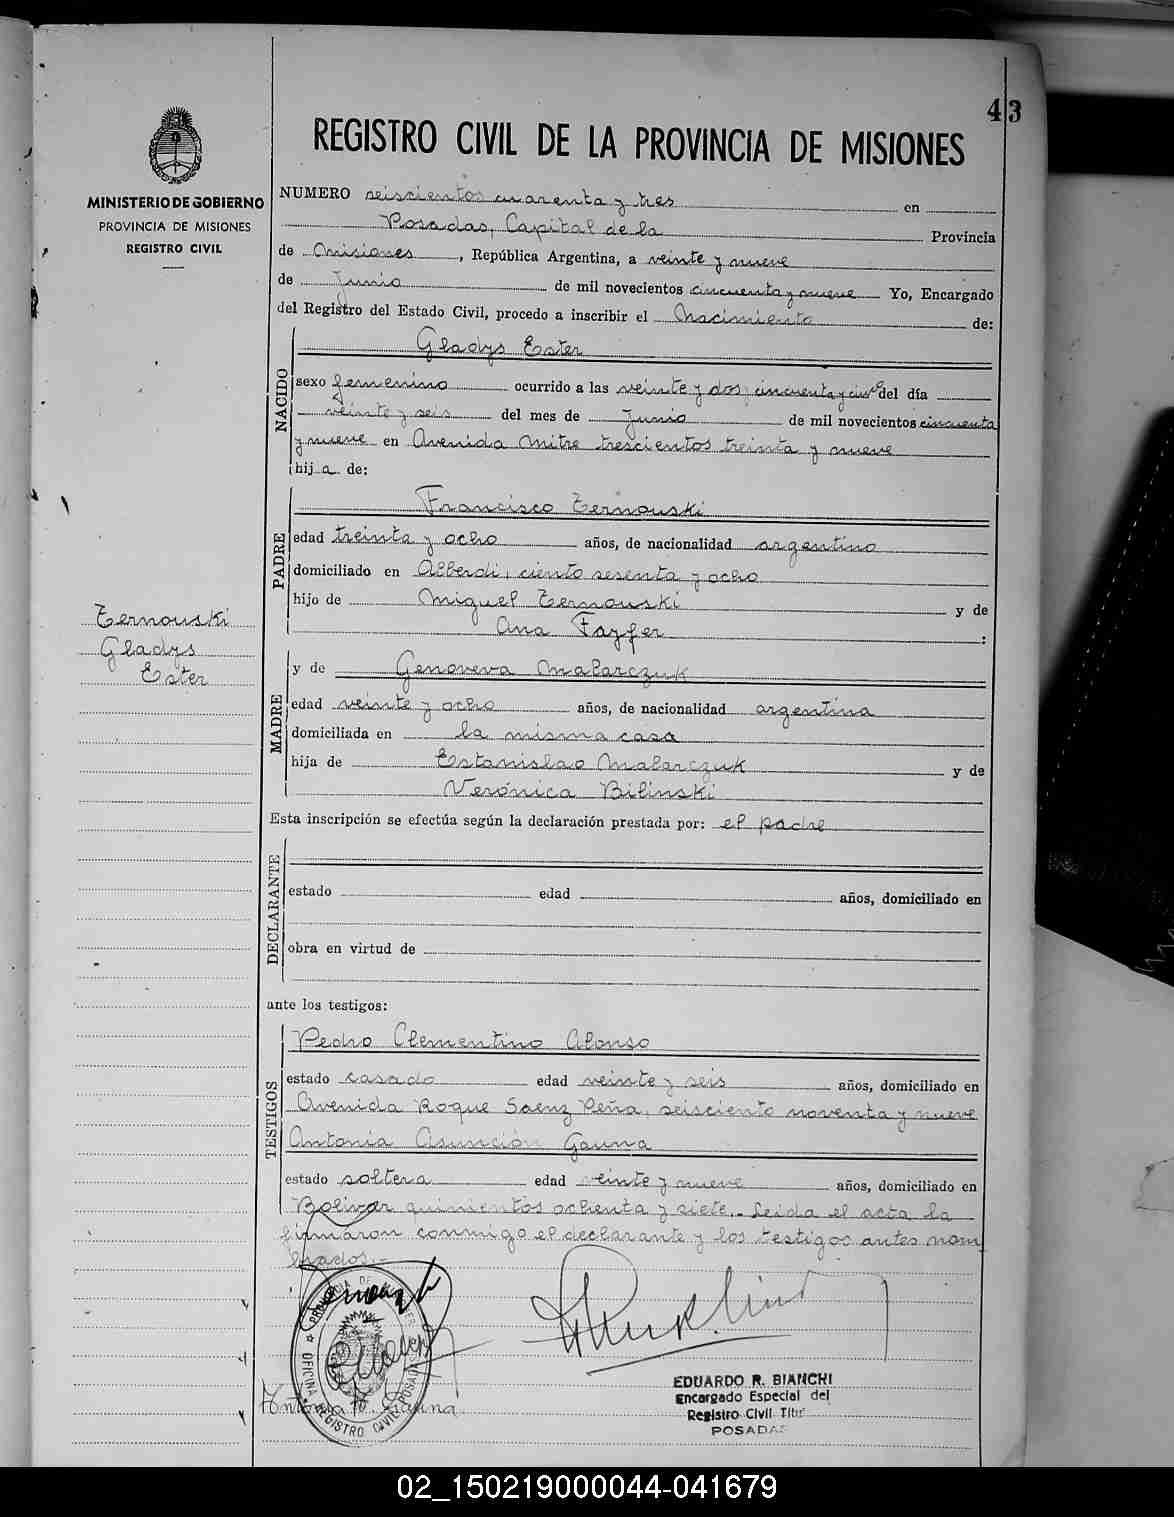 43
REGISTRO CIVIL DE LA PROVINCIA DE MISIONES
MINISTERIO DE GOBIERNO
PROVINCIA DE MISIONES
REGISTRO CIVIL
NUMERO seiscientos cuarenta y tres en
Posadas, Capital de la Provincia
de Misiones, República Argentina, a veinte y nueve
de Junio de mil novecientos cincuenta y nueve Yo, Encargado
del Registro del Estado Civil, procedo a inscribir el Nacimiento de:
NACIDO
Gladys Ester
sexo femenino ocurrido a las veinte y dos, cincuenta y cinco del día
veinte y seis del mes de Junio de mil novecientos cincuenta
y nueve en Avenida Mitre trescientos treinta y nueve
hija de:
PADRE
Francisco Zernouski
edad treinta y ocho años, de nacionalidad argentino
domiciliado en Alberdi, ciento sesenta y ocho
hijo de Miguel Zernouski y de
Ana Fayfer :
Zernouski
Gladys
Ester
MADRE
y de Genoveva Malarczuk
edad veinte y ocho años, de nacionalidad argentina
domiciliada en la misma casa
hija de Estanislao Malarczuk y de
Verónica Bilinski
Esta inscripción se efectúa según la declaración prestada por: el padre
DECLARANTE
estado edad años, domiciliado en
obra en virtud de
ante los testigos:
TESTIGOS
Pedro Clementino Alonso
estado casado edad veinte y seis años, domiciliado en
Avenida Roque Saenz Peña, seisciento noventa y nueve
Antonia Asunción Gauna
estado soltera edad veinte y nueve años, domiciliado en
Bolivar quinientos ochenta y siete.- Leida el acta la
firmaron conmigo el declarante y los testigos antes nom
brados.-
PROVINCIA DE MISIONES
OFICINA REGISTRO CIVIL POSADAS
Antonia A. Gauna
EDUARDO R. BIANCHI
Encargado Especial del
Registro Civil Titu
POSADAS
02_150219000044-041679